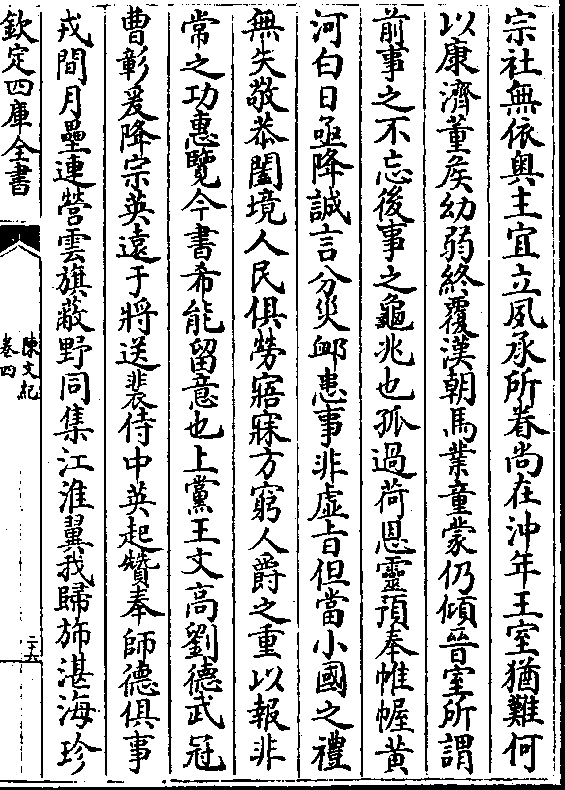 宗社無依奥主宜立夙承所眷尚在沖年王室猶難何
以康濟董侯幼弱終覆漢朝馬業童蒙仍傾晉室所謂
前事之不忘後事之龜兆也孤過荷恩靈預奉帷幄黄
河白日亟降誠言分災䘏患事非虚旨但當小國之禮
無失敬恭闔境人民俱勞寤寐方窮人爵之重以報非
常之功惠覽今書希能留意也上黨王文高劉德武冠
曹彰爰降宗英遠于將送裴侍中英起贊奉師德俱事
戎間月壘連營雲旗蔽野同集江淮翼我歸斾湛海珍
欽定四庫全書
陳文紀
卷四
二十六